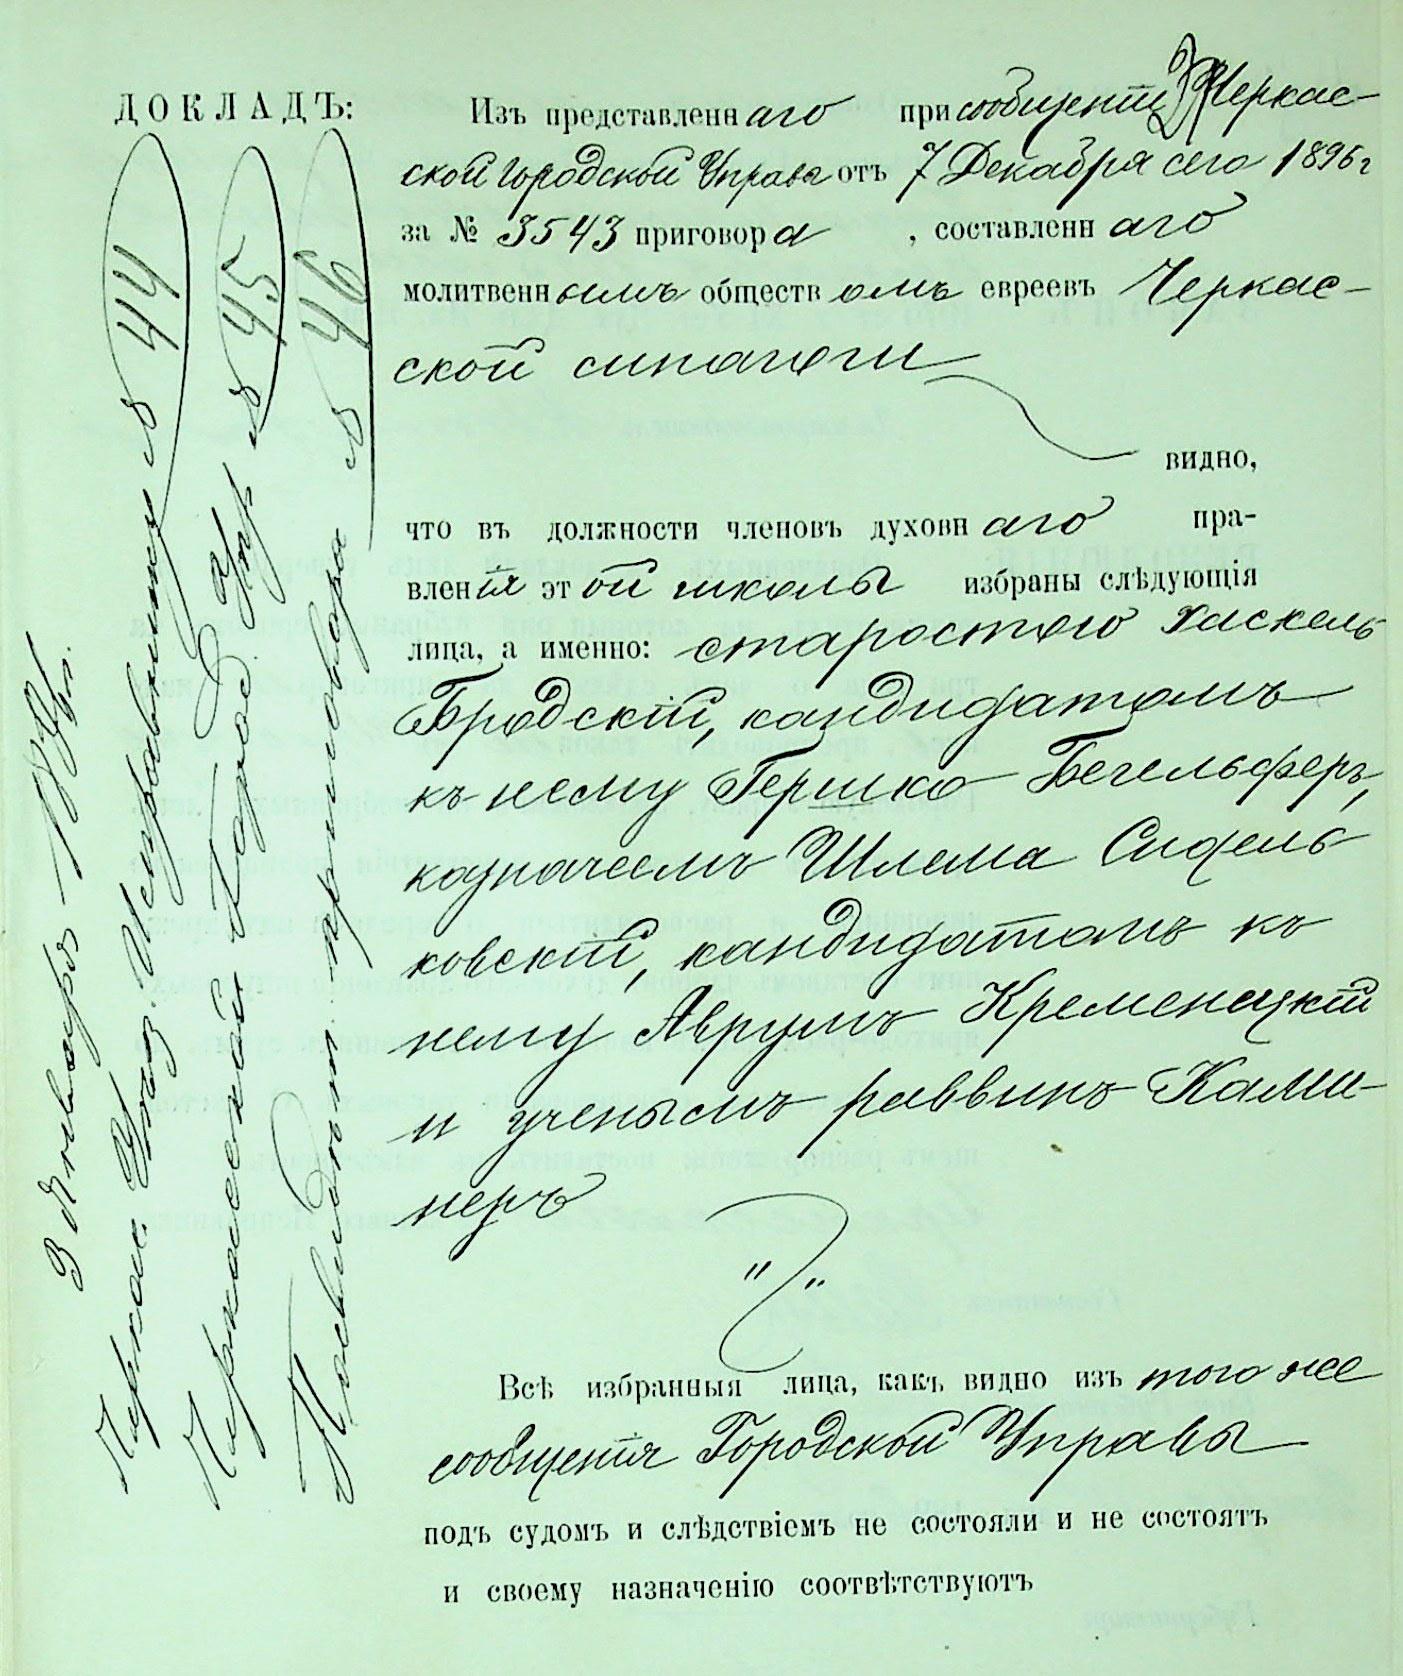 ДОКЛАДЪ:
Изъ представленнаго при сообщеніи Черкас-
ской Городской Управы отъ 7 Декабря сего 1896 г
за № 3543 приговора, составленнаго
молитвеннымъ обществомъ евреевъ Черкас-
ской синагоги
видно,
что въ должности членовъ духовнаго пра-
вленія этой школы избраны слѣдующія
лица, а именно: старостою Хаскель
Бродскій, кандидатомъ
къ нему Гершко Бегельферъ,
казначеемъ Шлема Сидель-
ковскій, кандидатомъ къ
нему Аврумъ Кременецкій
и ученымъ раввинъ Ками-
неръ
Всѣ избранныя лица, какъ видно изъ того же
сообщенія Городской Управы
подъ судомъ и слѣдствіемъ не состояли и не состоятъ
и своему назначенію соотвѣтствуютъ
3 Января
Черкас. Уѣзд. Исправнику № 44
Черкасской Город. Упр № 45
приговора № 46